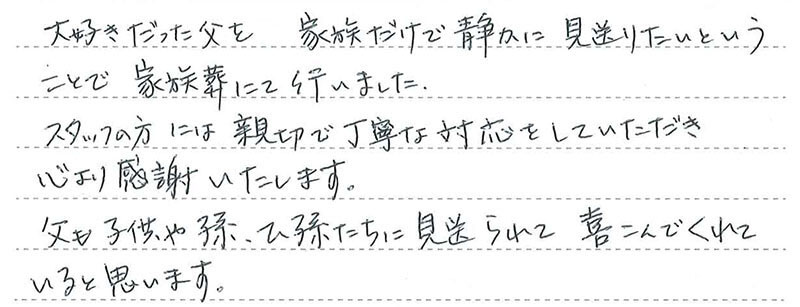 大好きだった父を 家族だけで静かに見送りたいという
ことで家族葬にて行いました.
スタッフの方には親切で丁寧な対応をしていただき
心より感謝いたします。
父も子供や孫、ひ孫たちに見送られて 喜こんでくれて
いると思います。